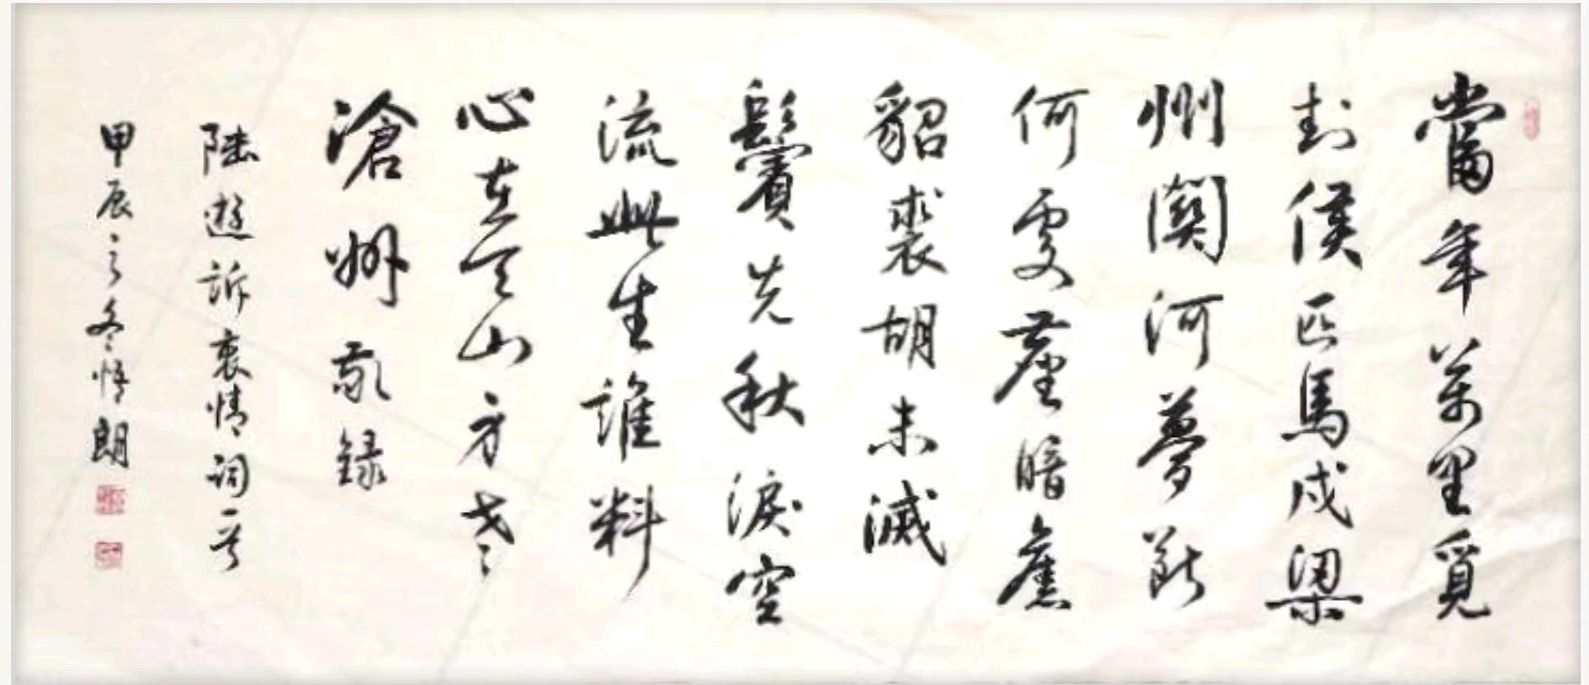 當年萬里覓
封侯匹馬戍梁
州關河夢斷
何處塵暗舊
貂裘胡未滅
鬢先秋淚空
流此生誰料
心在天山身老
滄州敬錄
陸遊訴衷情詞一首
甲辰之冬悟朗